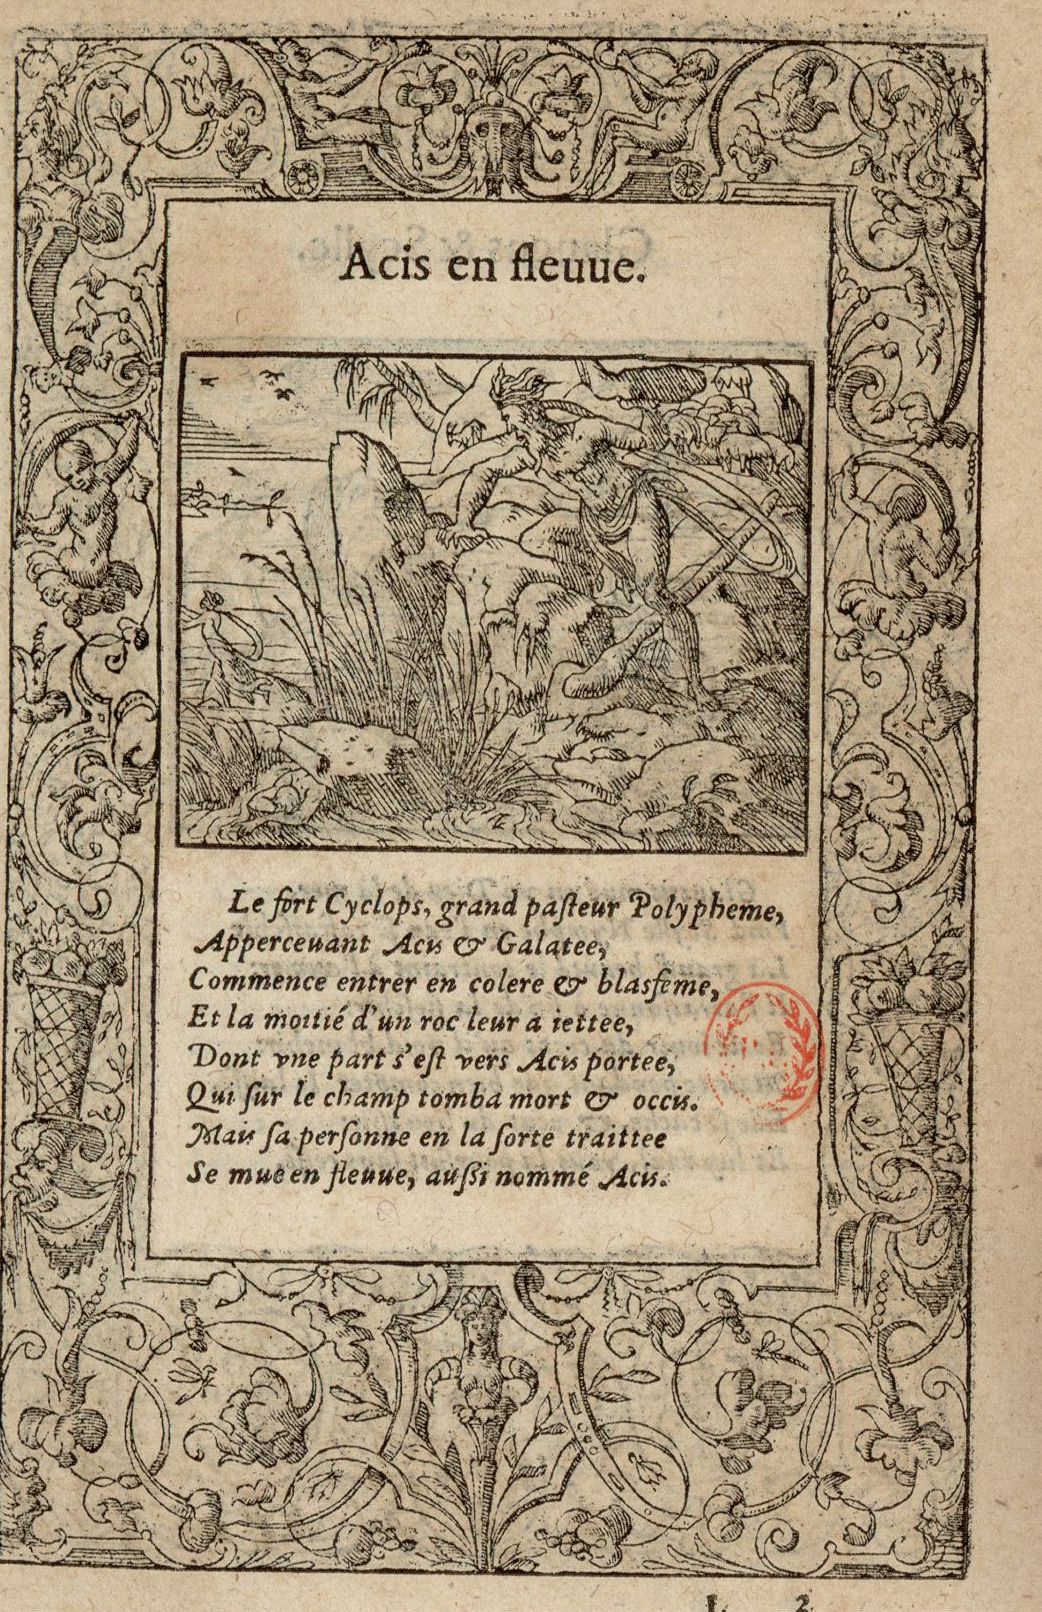 Acis en fleuue.
Le fort Cyclops, grand paſteur Polypheme,
Apperceuant Acis & Galatee,
Commence entrer en colere & blasfeme,
Et la moitié d'un roc leur a iettee,
Dont vne part s'eſt vers Acis portee,
Qui ſur le champ tomba mort & occis.
Mais ſa perſonne en la ſorte traittee
Se mue en fleuue, auſſi nommé Acis.
L 2